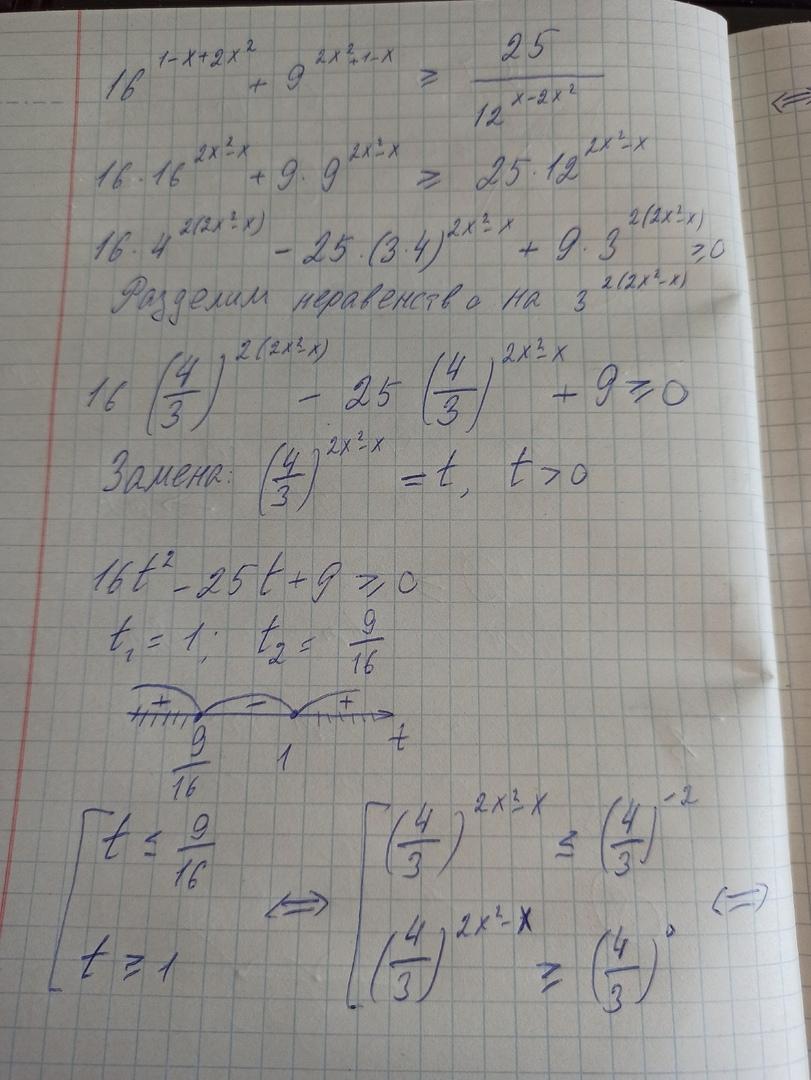 16^{1-x+2x²} + 9^{2x²+1-x} ≥ 25/12^{x-2x²}
⇔
16·16^{2x²-x} + 9·9^{2x²-x} ≥ 25·12^{2x²-x}
16·4^{2(2x²-x)} - 25·(3·4)^{2x²-x} + 9·3^{2(2x²-x)} ≥ 0
Разделим неравенство на 3^{2(2x²-x)}
16 (4/3)^{2(2x²-x)} - 25 (4/3)^{2x²-x} + 9 ≥ 0
Замена: (4/3)^{2x²-x} = t, t > 0
16t² - 25t + 9 ≥ 0
t₁ = 1; t₂ = 9/16
+ - +
9/16 1 t
[ t ≤ 9/16 ⇔ [ (4/3)^{2x²-x} ≤ (4/3)^{-2} ⇔
t ≥ 1 (4/3)^{2x²-x} ≥ (4/3)^{0}